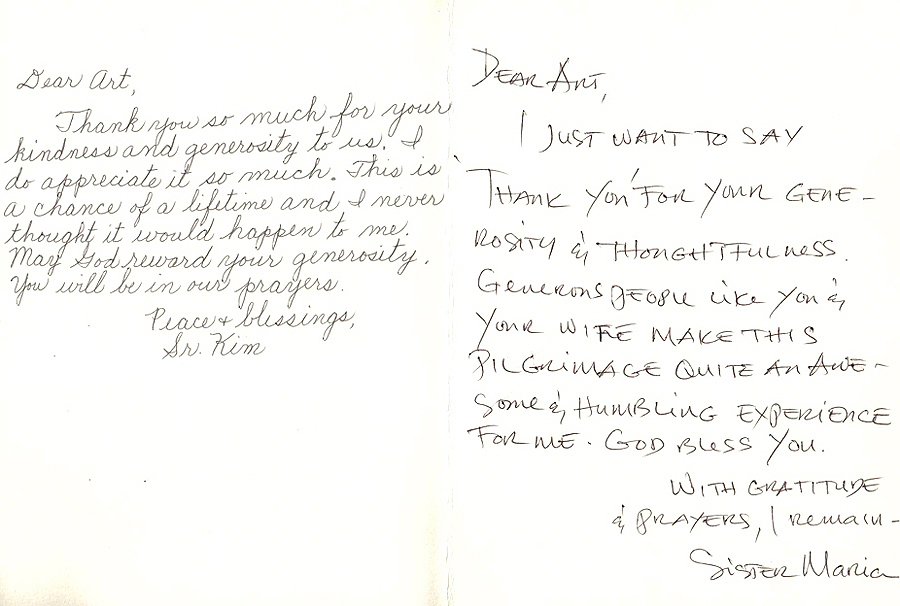 Dear Art,
Thank you so much for your
kindness and generosity to us. I
do appreciate it so much. This is
a chance of a lifetime and I never
thought it would happen to me.
May God reward your generosity.
You will be in our prayers.
Peace + blessings,
Sr. Kim
DEAR ART,
I JUST WANT TO SAY
"THANK YOU" FOR YOUR GENE-
ROSITY & THOUGHTFULNESS.
GENEROUS PEOPLE LIKE YOU &
YOUR WIFE MAKE THIS
PILGRIMAGE QUITE AN AWE-
SOME & HUMBLING EXPERIENCE
FOR ME. GOD BLESS YOU.
WITH GRATITUDE
& PRAYERS, I REMAIN -
SISTER MARIA